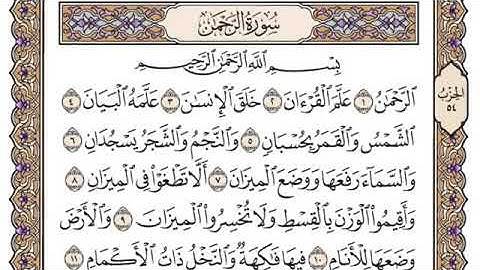 سُورَةُ الرَّحْمَٰن
بِسْمِ اللَّهِ الرَّحْمَٰنِ الرَّحِيمِ
الرَّحْمَٰنُ ١ عَلَّمَ الْقُرْءَانَ ٢ خَلَقَ الْإِنسَٰنَ ٣ عَلَّمَهُ الْبَيَانَ ٤
الشَّمْسُ وَالْقَمَرُ بِحُسْبَانٍ ٥ وَالنَّجْمُ وَالشَّجَرُ يَسْجُدَانِ ٦
وَالسَّمَاءَ رَفَعَهَا وَوَضَعَ الْمِيزَانَ ٧ أَلَّا تَطْغَوْا فِي الْمِيزَانِ ٨
وَأَقِيمُوا الْوَزْنَ بِالْقِسْطِ وَلَا تُخْسِرُوا الْمِيزَانَ ٩ وَالْأَرْضَ
وَضَعَهَا لِلْأَنَامِ ١٠ فِيهَا فَٰكِهَةٌ وَالنَّخْلُ ذَاتُ الْأَكْمَامِ ١١
الحِزْب
٥٤